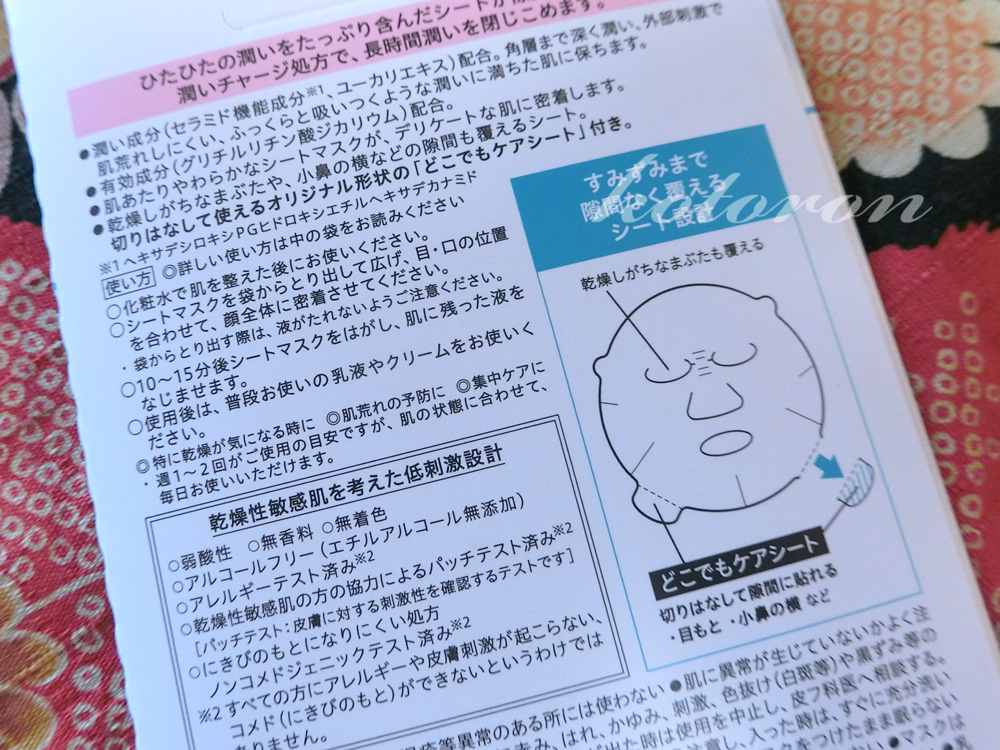 ひたひたの潤いをたっぷり含んだシートが
潤いチャージ処方で、長時間潤いを閉じこめます。
●潤い成分(セラミド機能成分※1、ユーカリエキス)配合。角層まで深く潤い、外部刺激で
肌荒れしにくい、ふっくらと吸いつくような潤いに満ちた肌に保ちます。
●有効成分(グリチルリチン酸ジカリウム)配合。
●肌あたりやわらかなシートマスクが、デリケートな肌に密着します。
●乾燥しがちなまぶたや、小鼻の横などの隙間も覆えるシート。
切りはなして使えるオリジナル形状の「どこでもケアシート」付き。
※1ヘキサデシロキシPGヒドロキシエチルヘキサデカナミド
使い方 ◎詳しい使い方は中の袋をお読みください
○化粧水で肌を整えた後にお使いください。
○シートマスクを袋からとり出して広げ、目・口の位置
を合わせて、顔全体に密着させてください。
・袋からとり出す際は、液がたれないようご注意ください。
○10〜15分後シートマスクをはがし、肌に残った液を
なじませます。
○使用後は、普段お使いの乳液やクリームをお使いく
ださい。
◎特に乾燥が気になる時に ◎肌荒れの予防に ◎集中ケアに
・週1〜2回がご使用の目安ですが、肌の状態に合わせて、
毎日お使いいただけます。
乾燥性敏感肌を考えた低刺激設計
○弱酸性 ○無香料 ○無着色
○アルコールフリー(エチルアルコール無添加)
○アレルギーテスト済み※2
○乾燥性敏感肌の方の協力によるパッチテスト済み※2
[パッチテスト:皮膚に対する刺激性を確認するテストです]
○にきびのもとになりにくい処方
ノンコメドジェニックテスト済み※2
※2すべての方にアレルギーや皮膚刺激が起こらない、
コメド(にきびのもと)ができないというわけでは
ありません。
すみずみまで
隙間なく覆える
シート設計
katoron
乾燥しがちなまぶたも覆える
どこでもケアシート
切りはなして隙間に貼れる
・目もと ・小鼻の横 など
●肌に異常が生じていないかよく注
等異常のある所には使わない
赤み、はれ、かゆみ、刺激、色抜け(白斑等)や黒ずみ等の
が出た時は使用を中止し、皮フ科医へ相談する。
入った時は、すぐに充分洗い
つけたまま眠らない
●マスクは